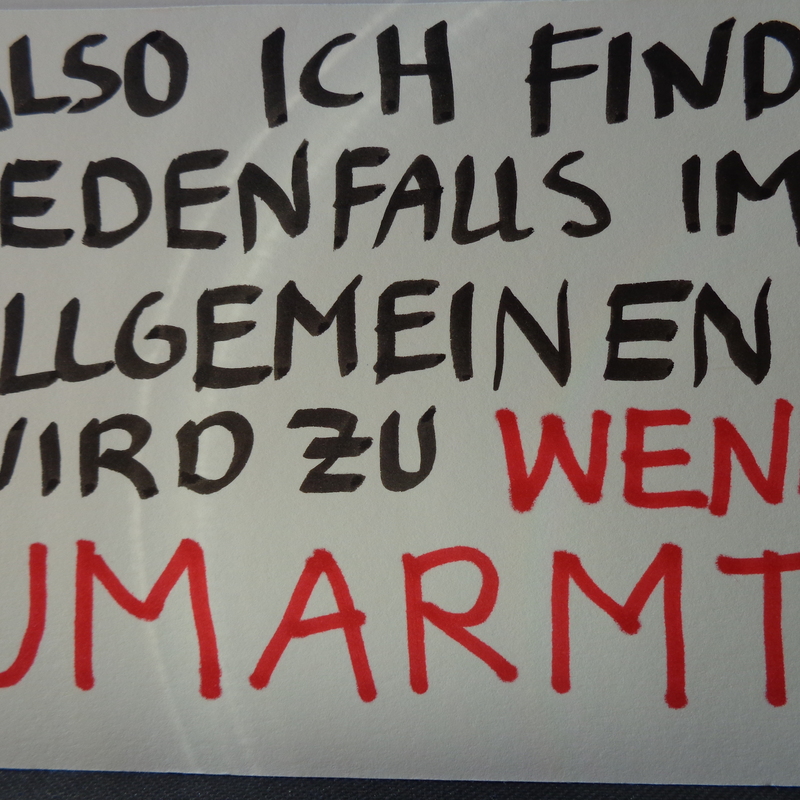 ALSO ICH FIND
EDENFALLS IM
LLGEMEINEN
WIRD ZU WEN
UMARMT